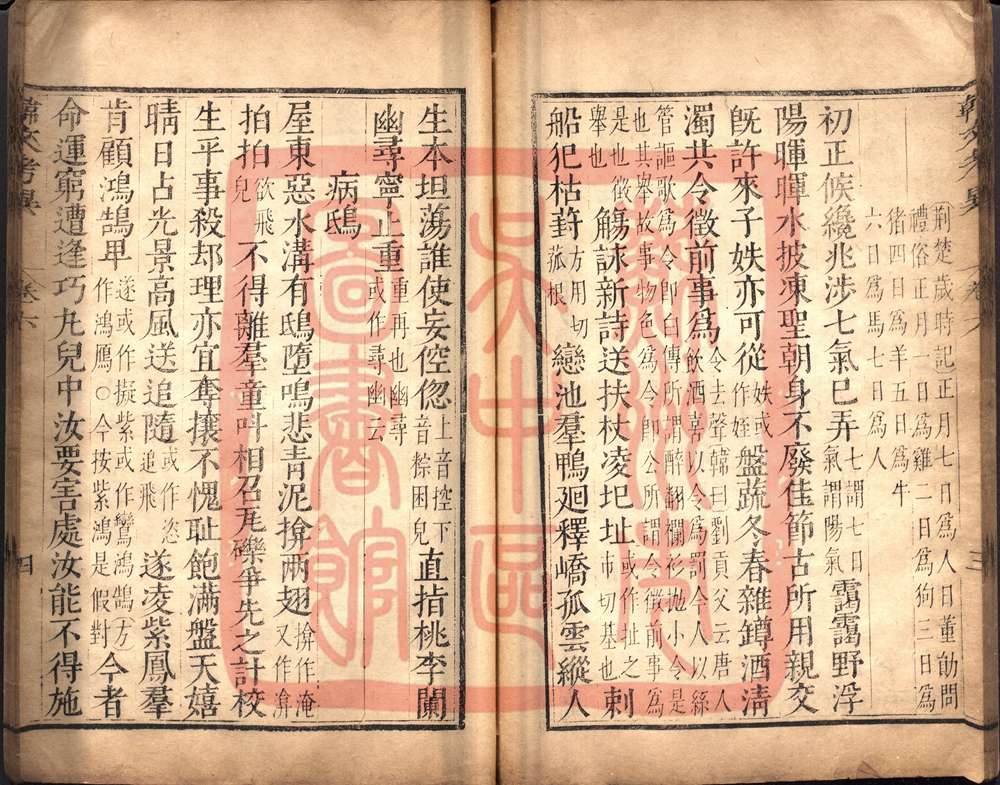 荆楚歲時記正月七日爲人日董勛問
禮俗正月一日爲雞二日爲狗三日爲
猪四日爲羊五日爲牛
六日爲馬七日爲人
初正候纔兆涉七氣巳弄七謂七日氣謂陽氣靄靄野浮
陽暉暉水披凍聖朝身不廢佳節古所用親交
旣許來子姝亦可從姝或作姪盤蔬冬春雜罇酒清
濁共令徵前事爲令去聲韓曰劉貢父云唐人飲酒喜以令爲罰今人以絲
管謳歌爲令卽白傳所謂醉翻襴衫抛小令是也其舉故事物色爲令卽公所謂令徵前事爲
是也徵舉也觴詠新詩送扶杖凌圯址址或作扯之市切基也剌
船犯枯葑方用切菰根戀池羣鴨廻釋嶠孤雲縱人
韓文考異 卷六 三
生本坦蕩誰使妄倥偬上音控下音粽困皃直指桃李闌
幽尋寧止重重再也幽尋或作尋幽云
病鴟
屋東惡水溝有鴟墮鳴悲靑泥揜兩翅揜作淹又作渰
拍拍欲飛皃不得離羣童叫相召瓦礫爭先之計校
生平事殺却理亦宜奪攘不愧耻飽滿盤天嬉
晴日占光景高風送追隨或作恣追飛遂凌紫鳳羣
肯顧鴻鵠卑遂或作擬紫或作鸞鴻鵠方作鴻鴈○今按紫鴻是假對今者
命運窮遭逢巧丸兒中汝要害處汝能不得施
韓文考異 卷六 四
蘇州市
吳中區
圖書館